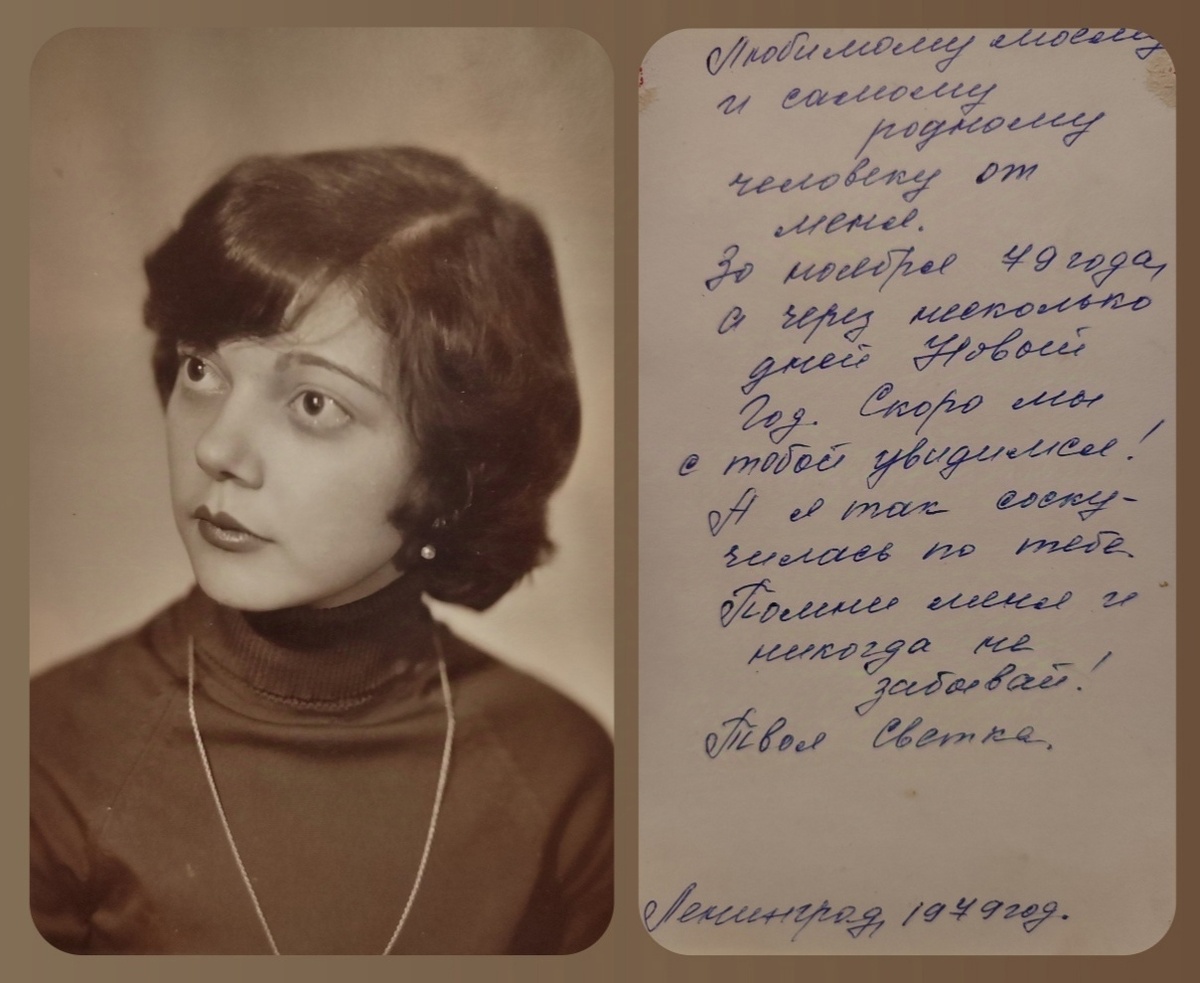 Любимому моему
и самому
родному
человеку от
меня.
30 ноября 79 года,
а через несколько
дней Новый
Год. Скоро мы
с тобой увидимся!
А я так соску-
чилась по тебе.
Помни меня и
никогда не
забывай!
Твоя Светка.
Ленинград, 1979 год.